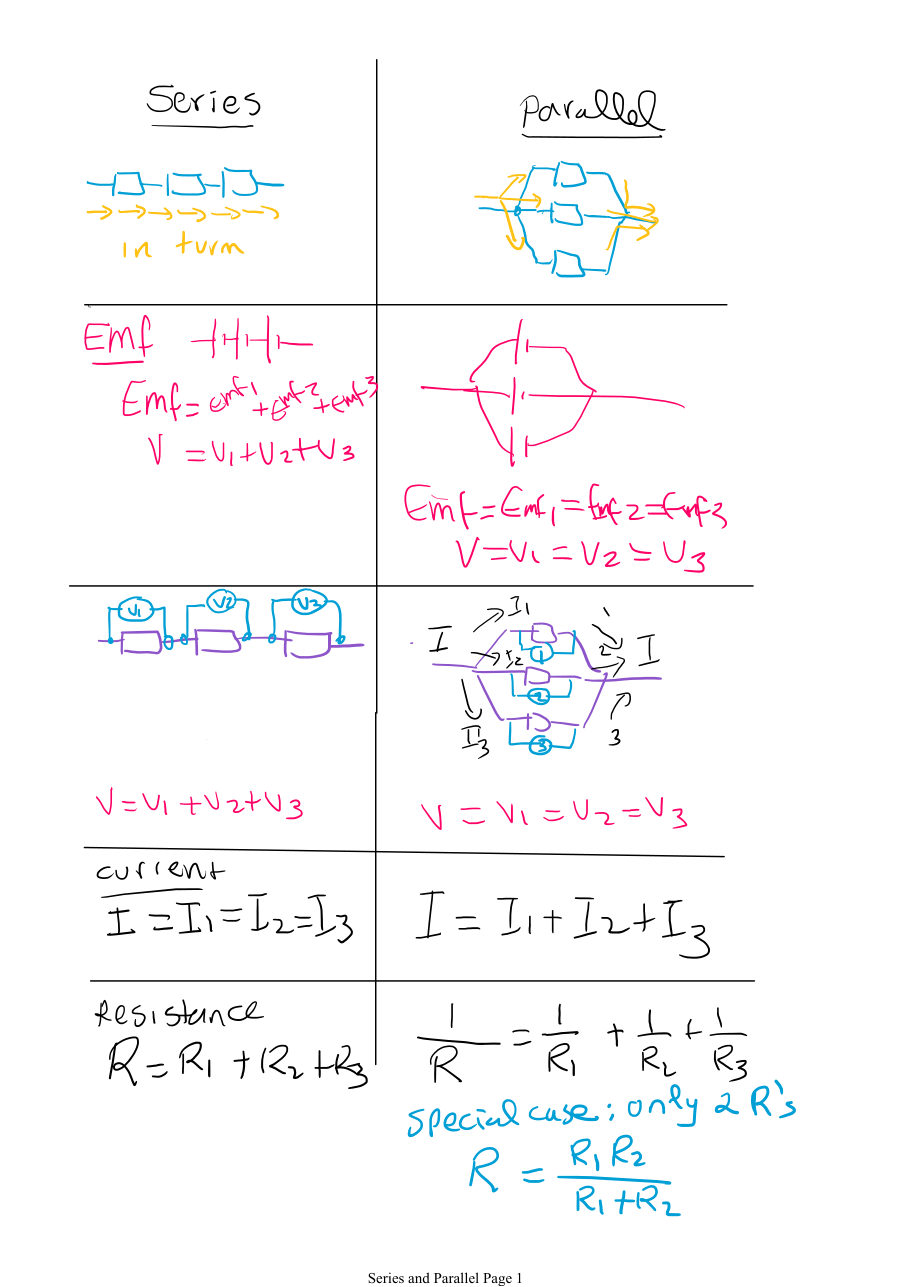 Series
Parallel
in turn
Emf
Emf = emf1 + emf2 + emf3
V = V1 + V2 + V3
Emf = Emf1 = Emf2 = Emf3
V = V1 = V2 = V3
V1 V2 V3
I I1 1
I2 1 2 I
2
I3 3 3
V = V1 + V2 + V3
V = V1 = V2 = V3
current
I = I1 = I2 = I3
I = I1 + I2 + I3
Resistance
R = R1 + R2 + R3
1/R = 1/R1 + 1/R2 + 1/R3
special case: only 2 R's
R = R1 R2 / R1 + R2
Series and Parallel Page 1